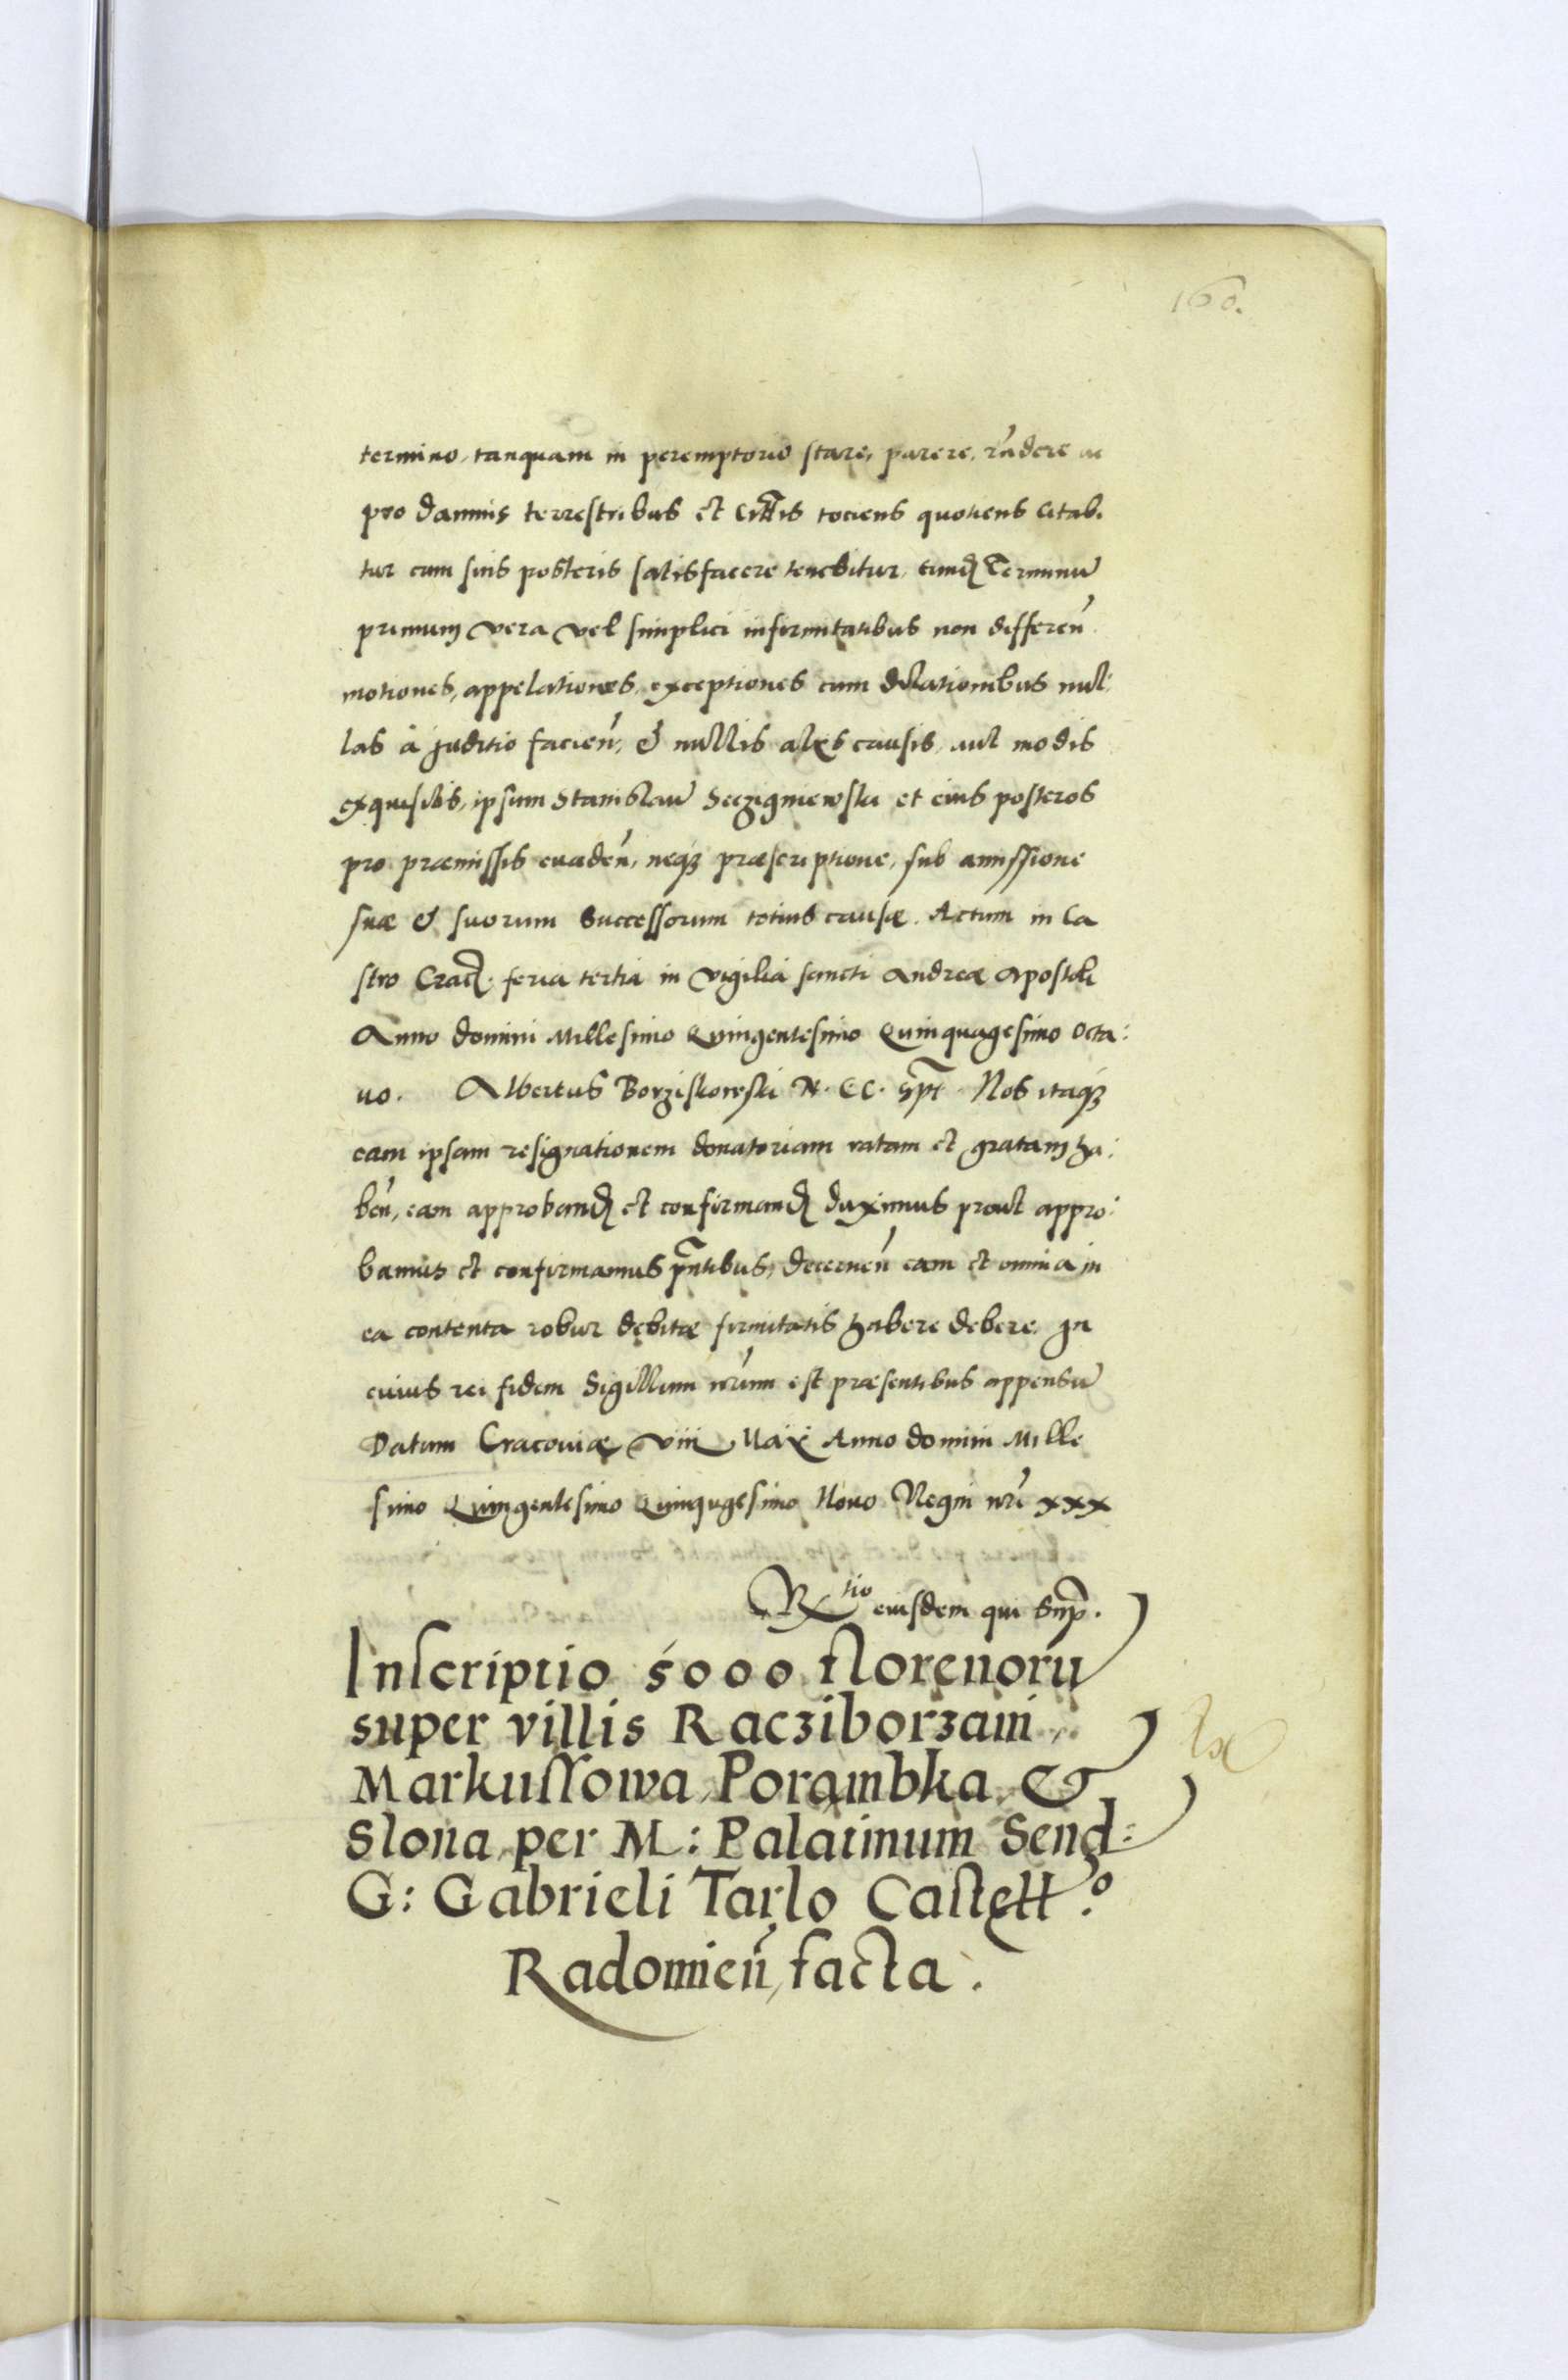 160.
termino, tanquam in peremptorio stare, parere, rñdere ac
pro damnis terrestribus et toties quotiens citab.
tur cum suis posteris satisfacere tenebitur, eund Terminũ
primum vera vel simplici infirmitatibus non differeñ
motiones, appelationes, exceptiones cum dilationibus nul:
las à juditio facieñ, & nullis alys causis, aut modis
exquisitis, ipsum Stanislaũ Seczigniewski et eius posteros
pro præmissis evadeñ, neqz præscriptione, sub amissione
suæ & suorum Successorum totius causæ. Actum in Ca
stro Crac. feria tertia in vigilia sancti Andreæ Apostoli
Anno domini Millesimo Quingentesimo Quinquagesimo Octa:
uo. Albertus Borziskowski N. CC. spt. Nos itaqz
eam ipsam resignationem donatoriam ratam et gratam ha:
beñ, eam approband et confirmand duximus prout appro:
bamus et confirmamus pñtibus, decerneñ eam et omnia in
ea contenta robur debitæ firmitatis habere debere. In
cuius rei fidem Sigillum nr̃um est præsentibus appensũ
Datum Cracoviæ viii Maÿ Anno domini Mille
simo Quingentesimo Quinqugesimo Nono Regni nrĩ xxx
Rtio eiusdem qui Sup.
Inscriptio 5000 florenorũ
super villis Racziborzani
Markussowa, Porąmbka, &
Slona, per M: Palatinum Send:
G: Gabrieli Tarlo Castell.o
Radomieñ, facta.